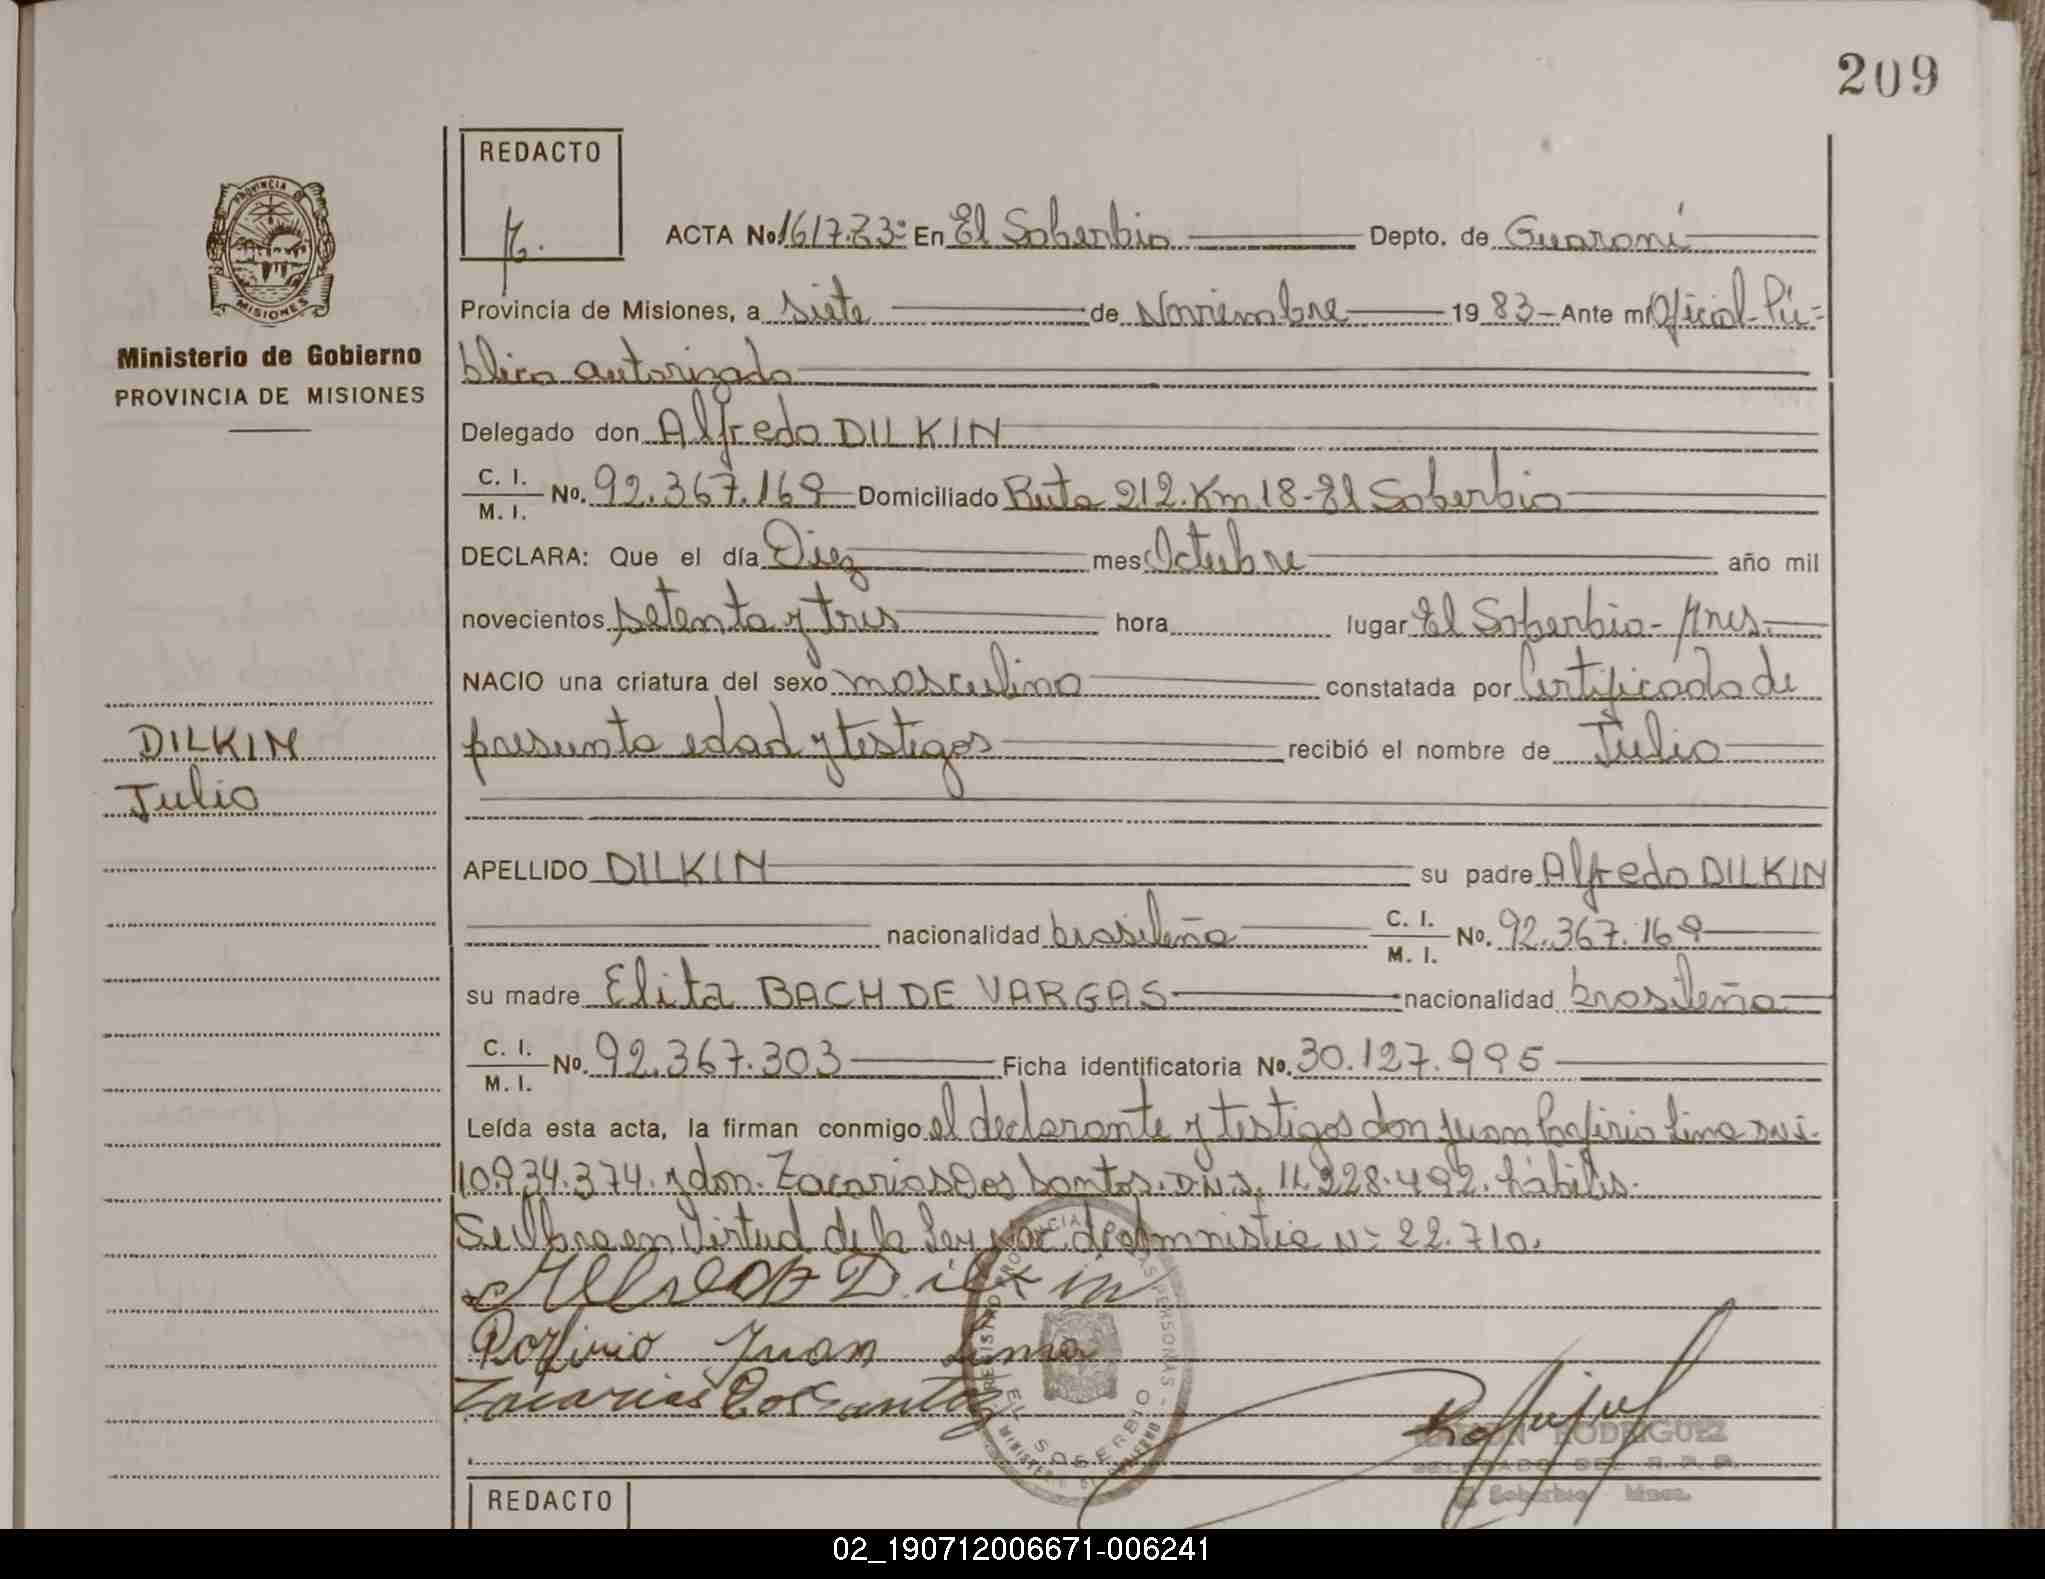 209
REDACTO
ACTA No 1617.73º En El Soberbio Depto. de Guaraní
Provincia de Misiones, a siete de Noviembre 1983 - Ante mí Oficial Pú=
blico autorizado
Ministerio de Gobierno
PROVINCIA DE MISIONES
Delegado don Alfredo DILKIN
C. I.
M. I. No. 92.367.169 Domiciliado Ruta 212. Km 18 - El Soberbio
DECLARA: Que el día Diez mes Octubre año mil
novecientos setenta y tres hora lugar El Soberbio - Mnes.
NACIO una criatura del sexo masculino constatada por Certificado de
presunta edad y testigos recibió el nombre de Julio
DILKIN
Julio
APELLIDO DILKIN su padre Alfredo DILKIN
nacionalidad brasileña C. I.
M. I. No. 92.367.169
su madre Elita BACH DE VARGAS nacionalidad brasileña
C. I.
M. I. No. 92.367.303 Ficha identificatoria No. 30.127.995
Leída esta acta, la firman conmigo el declarante y testigos don Juan Porfirio Lima D.N.I.
10.934.374. y don. Zacarias Dos Santos. D.N.I. 11.228.492. hábiles.
Se labra en Virtud de la Ley Nac. de Amnistia Nº 22.710.
Alfredo Dilkin
Porfirio Juan Lima
Zacarias Dos Santos
EL SOBERBIO
RODRIGUEZ
DELEGADO DEL R. P. P.
El Soberbio Mnes.
REDACTO
02_190712006671-006241